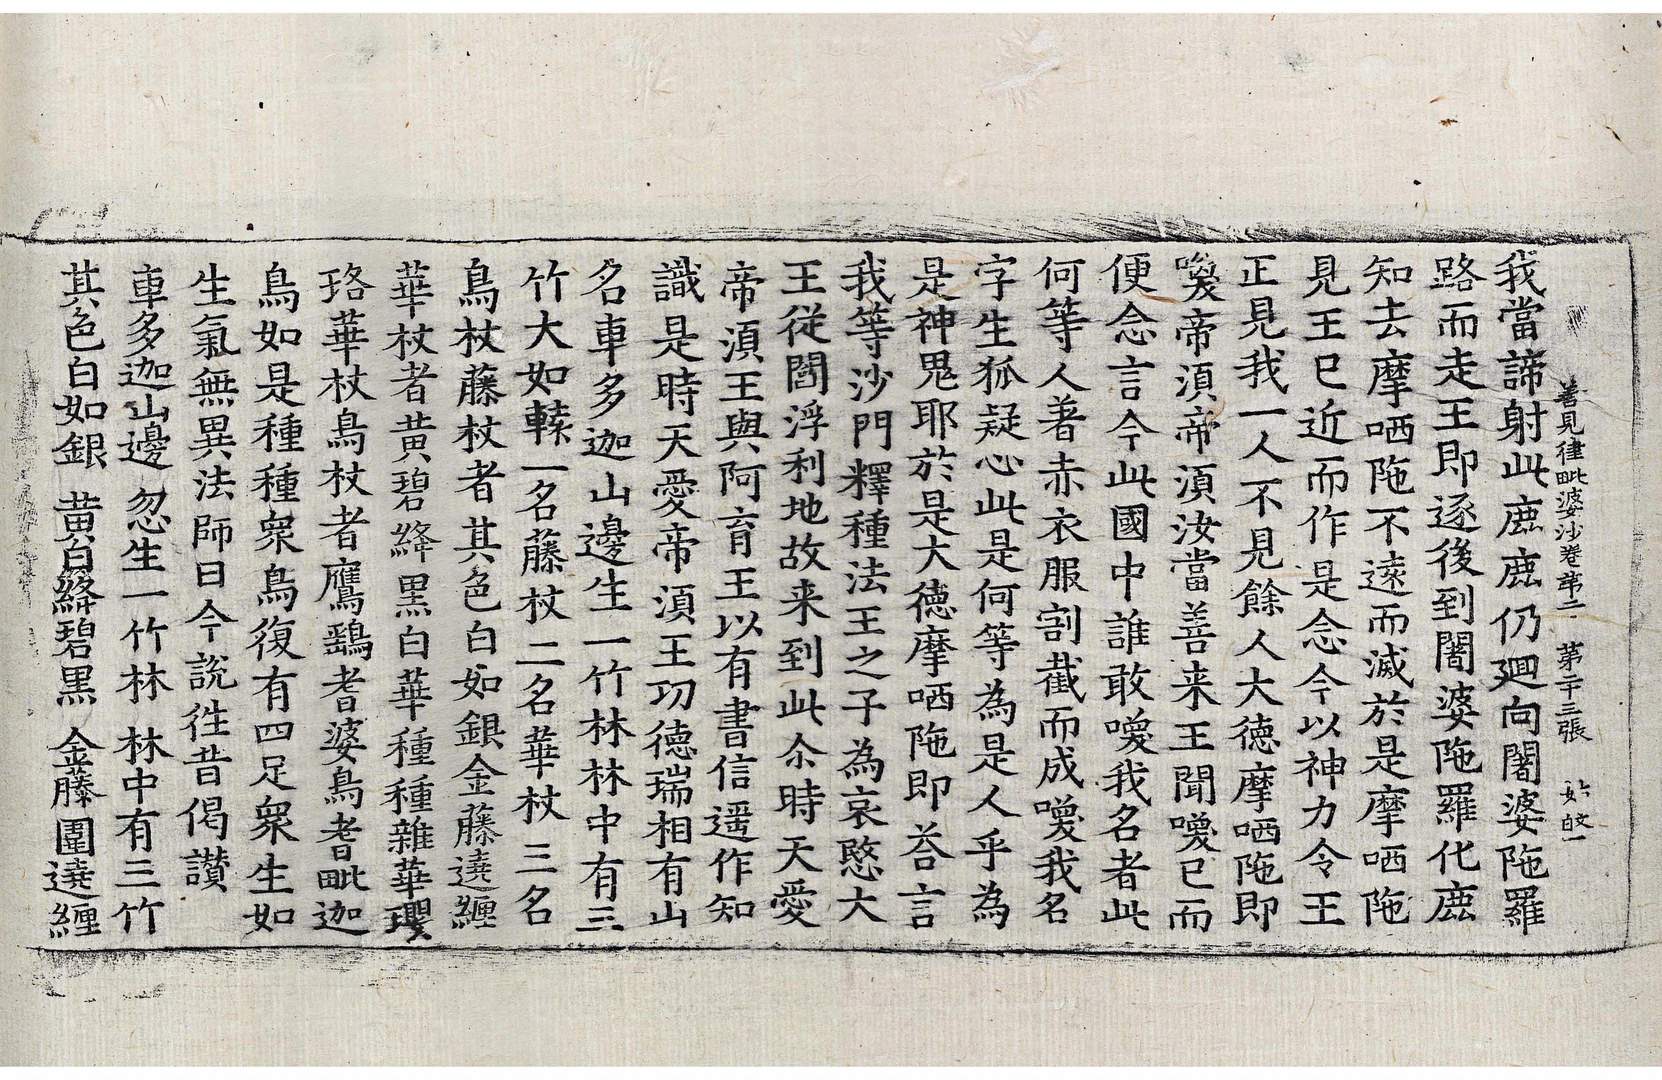 善見律毗婆沙卷第二 第二十三張
我當諦射此鹿鹿仍廻向闍婆陁羅
路而走王即逐後到闍婆陁羅化鹿
知去摩哂陁不遠而滅於是摩哂陁
見王已近而作是念今以神力令王
正見我一人不見餘人大德摩哂陁即
喚帝湏帝湏汝當善来王聞喚已而
便念言今此國中誰敢喚我名者此
何等人著赤衣服割截而成喚我名
字生狐疑心此是何等為是人乎為
是神鬼耶於是大德摩哂陁即荅言
我等沙門釋種法王之子為哀愍大
王従閻浮利地故来到此尒時天愛
帝湏王與阿育王以有書信遥作知
識是時天愛帝湏王功德瑞相有山
名車多迦山邊生一竹林林中有三
竹大如轅一名藤杖二名華杖三名
鳥杖藤杖者其色白如銀金藤遶纏
華杖者黄碧絳黒白華種種雜華瓔
珞華杖鳥杖者鷹鷂者婆鳥者毗迦
鳥如是種種衆鳥復有四足衆生如
生氣無異法師曰今說徃昔偈讃
車多迦山邊 忽生一竹林 林中有三竹
其色白如銀 黄白絳碧黒 金藤圍遶纏